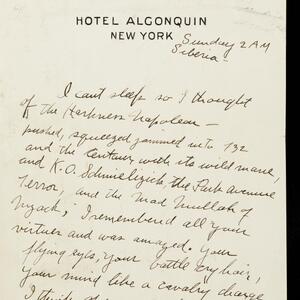 HOTEL ALGONQUIN
NEW YORK
Sunday 2 AM
Siberia
I cant sleep so I thought
of the Harkness Napoleon —
pushed, squeezed jammed into 792
and the Centaur with its wild mane,
and K.O. Schmielzich, the Park Avenue
Terror, and the Mad Mullah of
I remembered all your
virtues and was amazed. Your
flying eyes, your battle cry hair,
your mind like a cavalry charge